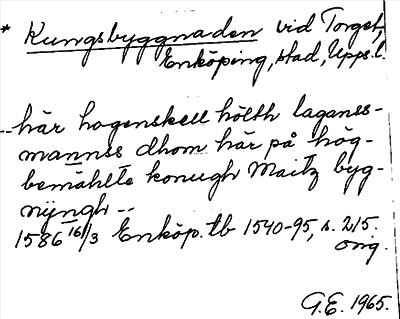 * Kungsbyggnaden vid Torget,
Enköping, stad, Upps. l.
--här hogenskell hölth laganss-
mannss dhom här på hög-
bemählte konugh Maitz byg-
nijngh --
1586 16/3 Enköp. tb 1540-95, s. 215.
orig.
G.E. 1965.